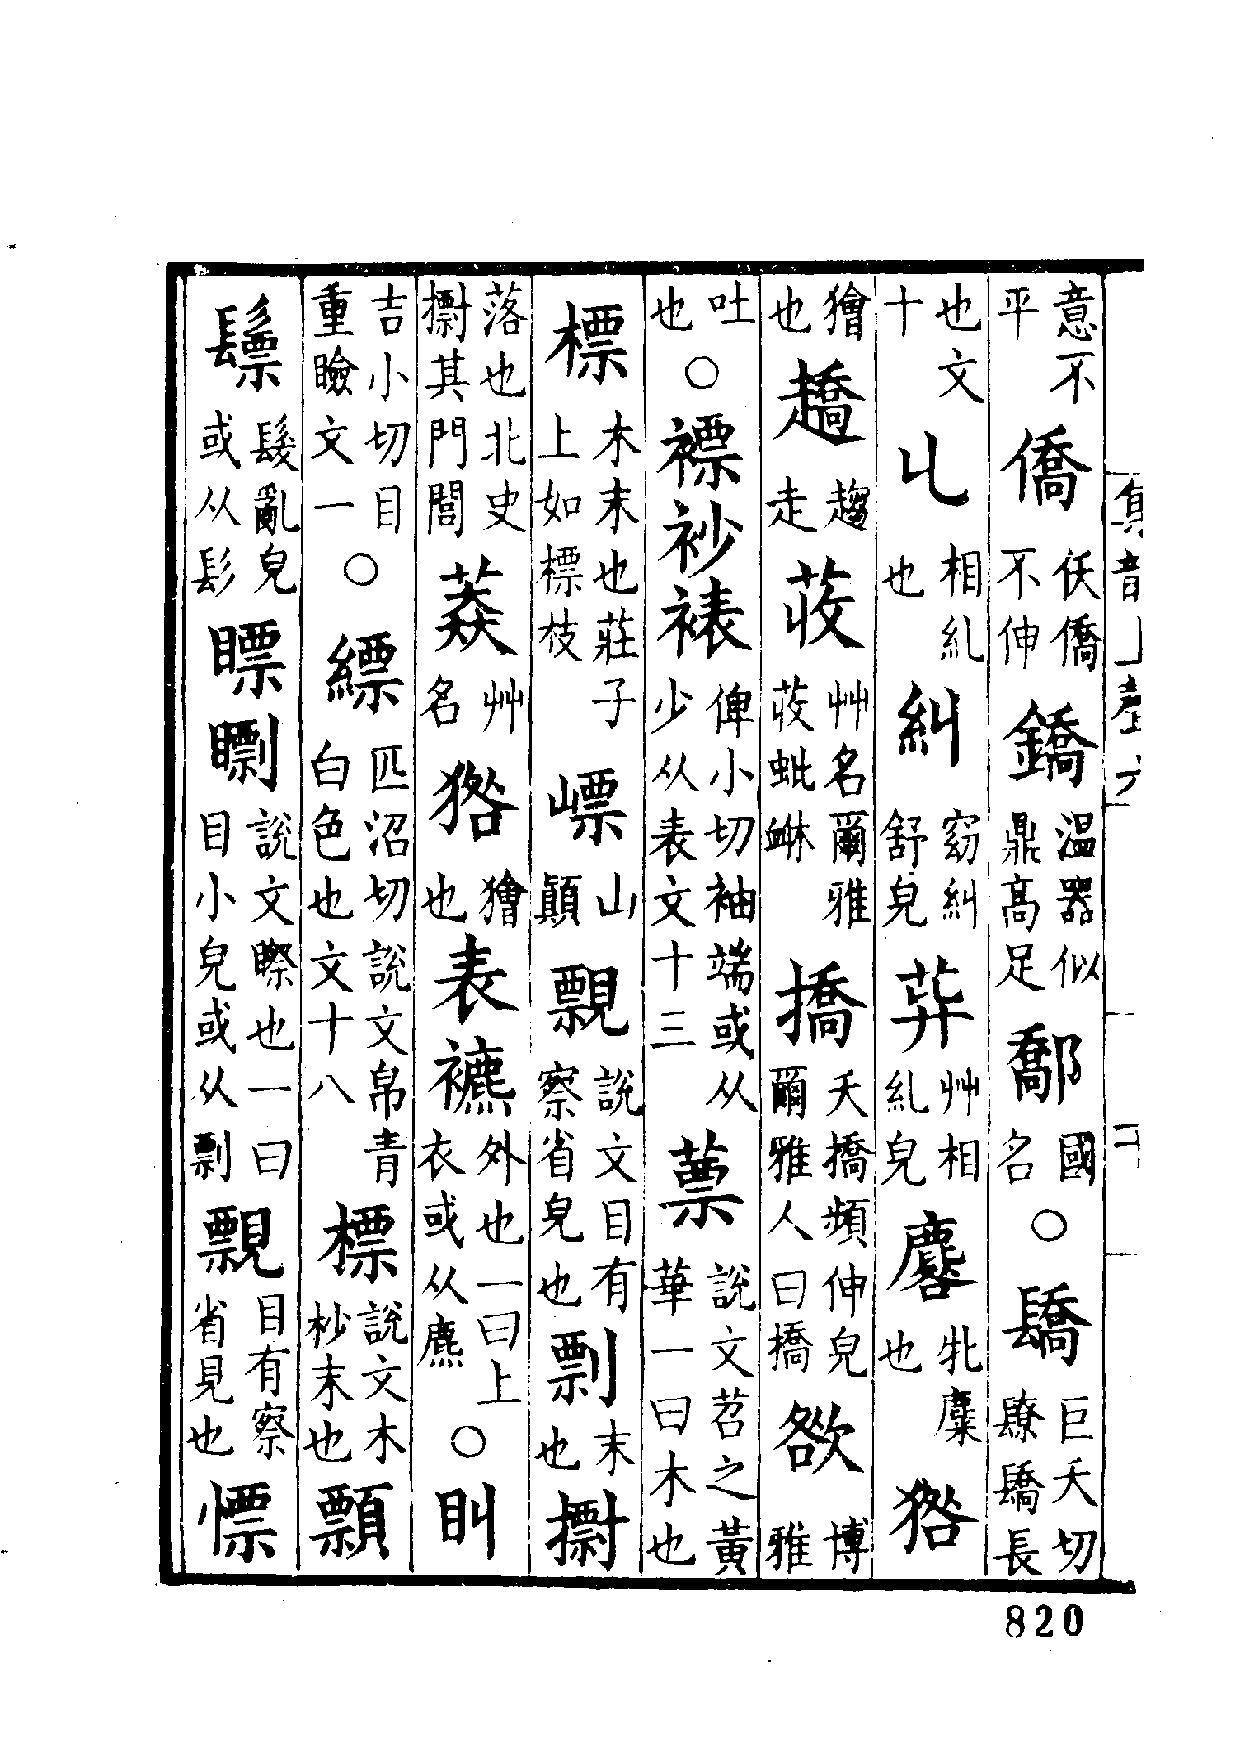 意不平 僑 仸僑不伸 鐈 温器似鼎高足 鄗 國名 ○ 䮦 巨夭切镽䮦長
也文十 丩 相糺也 糾 窈糾舒皃 茻 艸相糺皃 麔 牝麋也 㺉
獪也 趫 趨走 荍 艸名爾雅荍蚍衃 撟 夭撟頻伸皃爾雅人曰撟 㰶 博雅
吐也 ○ 褾䘯裱 俾小切袖端或从少从表文十三 蔈 說文苕之黃華一曰木也
標 木末也莊子上如標枝 嶛 山顛 覭 說文目有察省皃也 剽 末也 擨
落也北史擨其門閭 䔸 艸名 㺉 獪也 表褾 外也一曰上衣或从麃 ○ 䀊
吉小切目重瞼文一 ○ 縹 匹沼切說文帛青白色也文十八 標 說文木杪末也 顠
髟票 髮亂皃或从髟 瞟䁃 說文瞭也一曰目小皃或从剽 覭 目有察省見也 慓
820